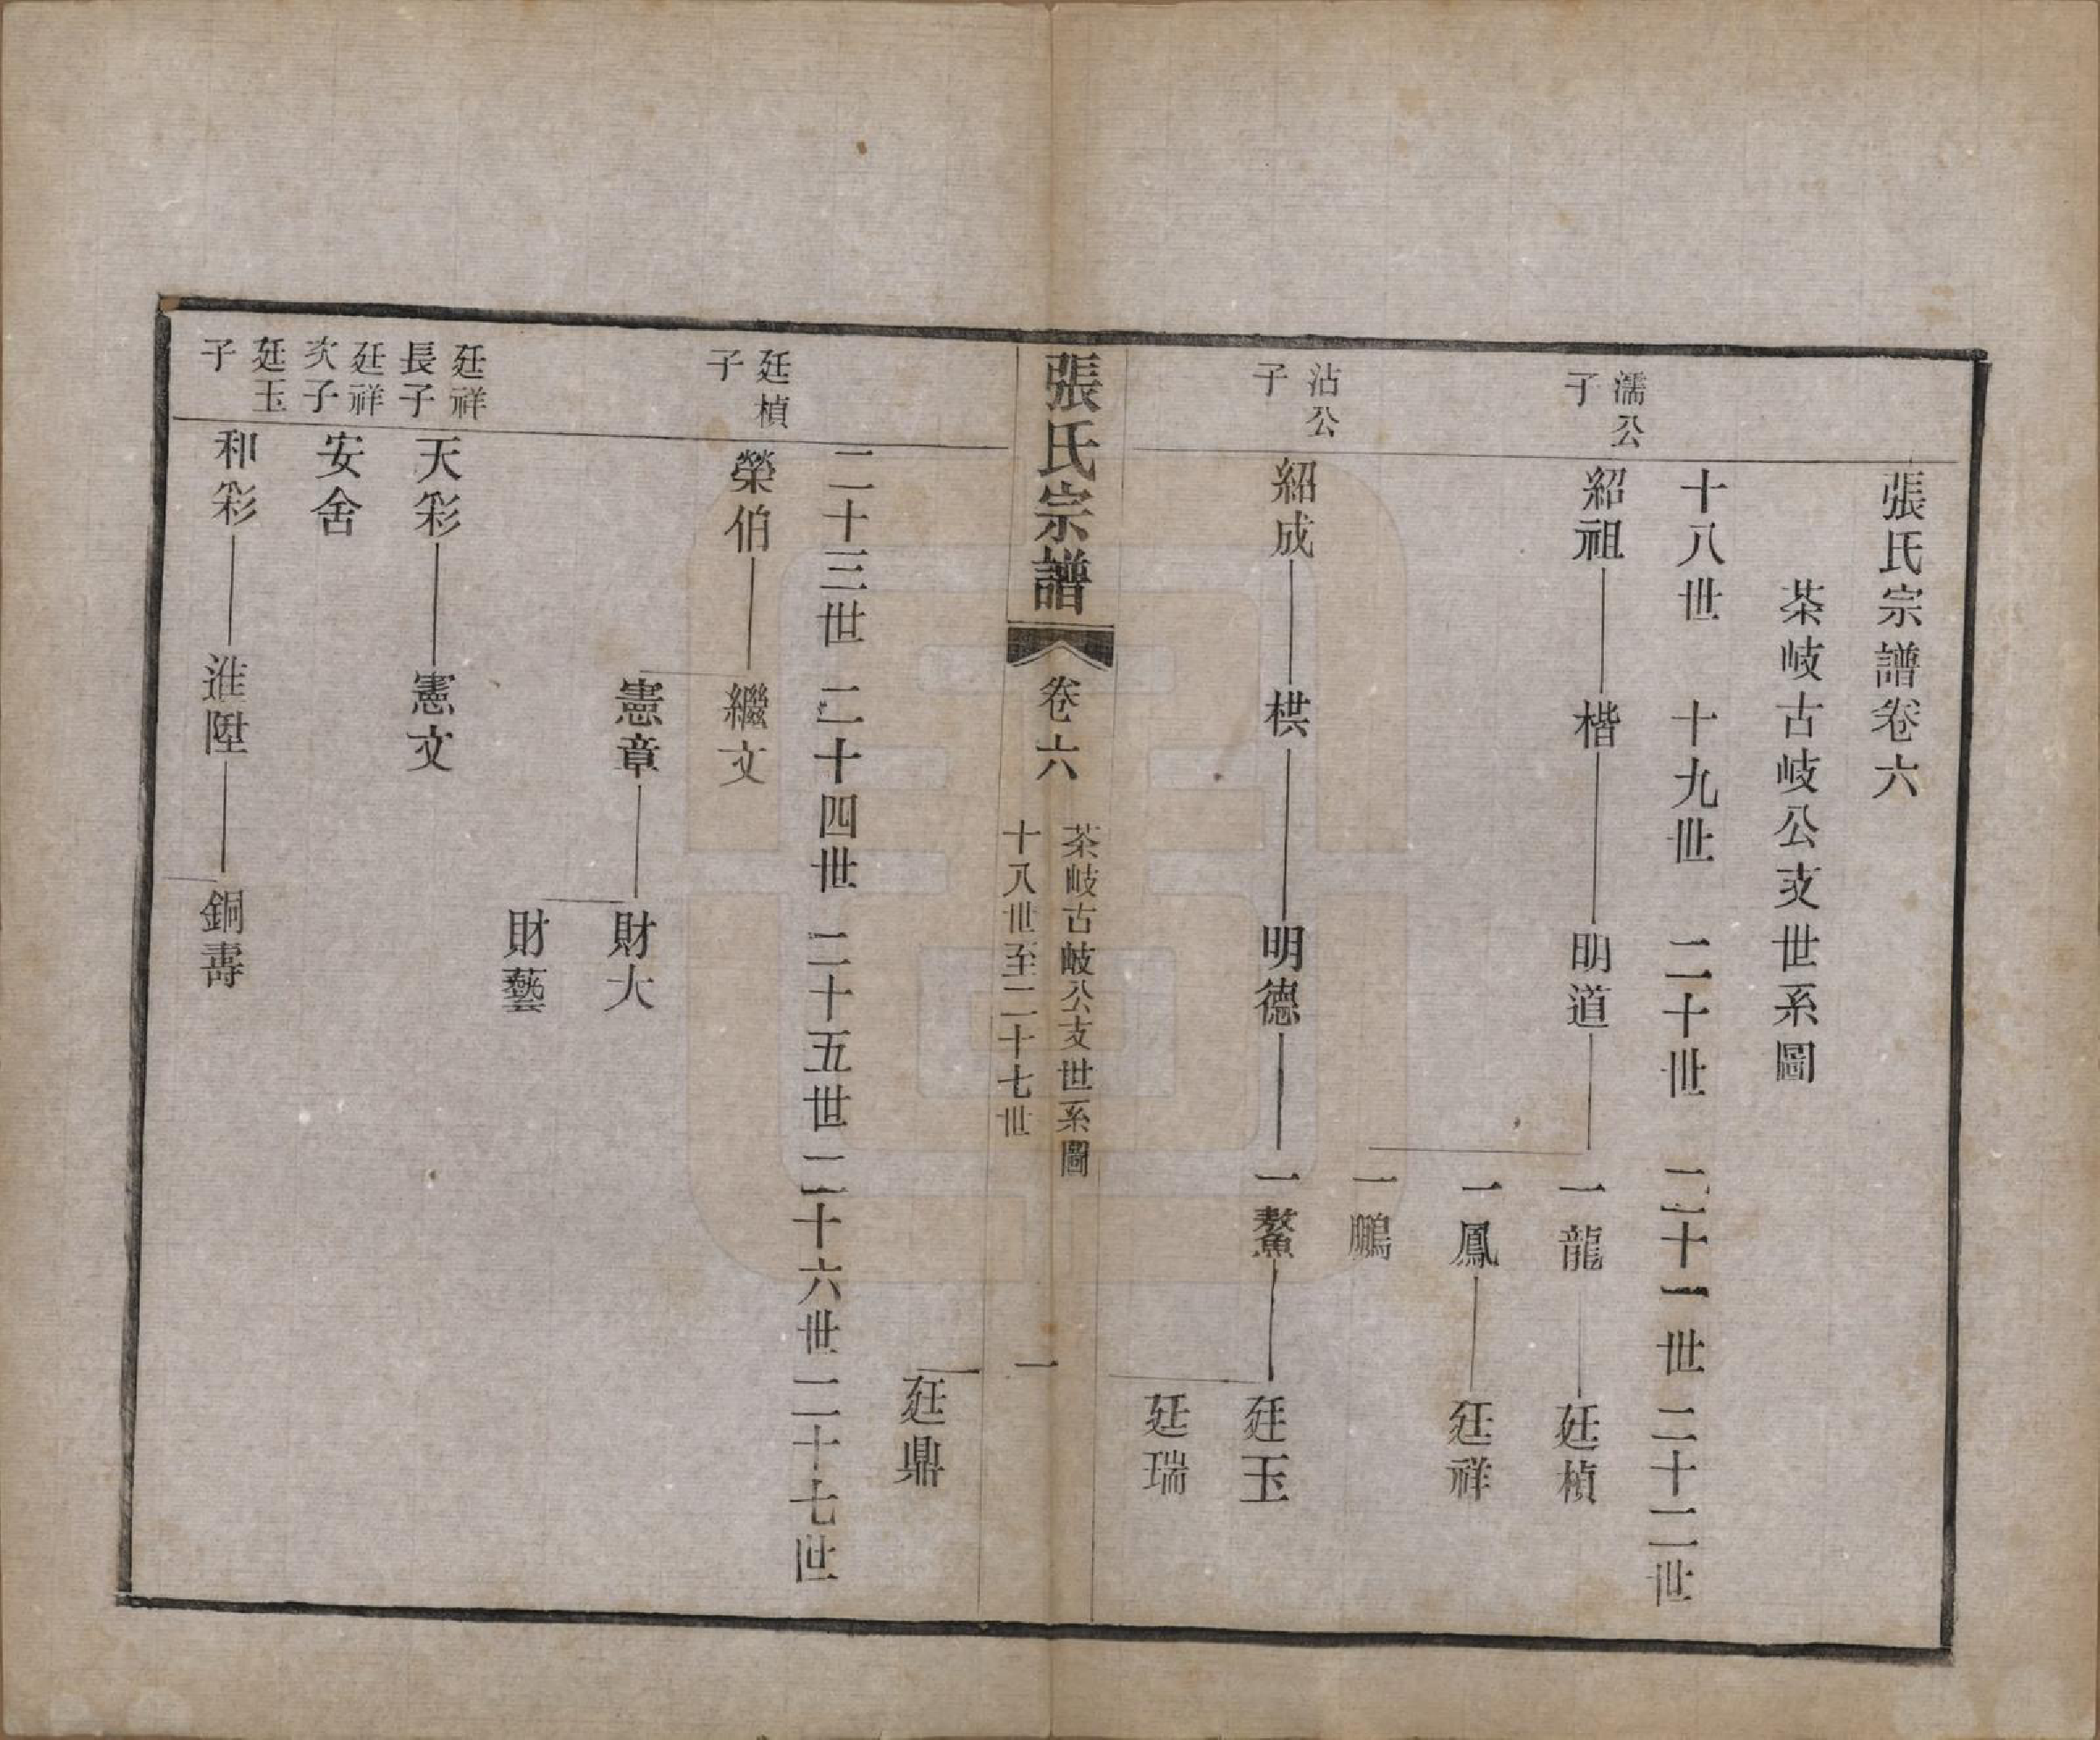 張氏宗譜卷六
茶岐古岐公支世系圖
十八世 十九世 二十世 二十一世 二十二世
濡公子
紹祖 楷 明道 一龍 廷楨
一鳳 廷祥
一鵬
沾公子
紹成 栱 明德 一鰲 廷玉
廷瑞
張氏宗譜 卷六 茶岐古岐公支世系圖 十八世至二十七世 一
廷鼎
二十三世 二十四世 二十五世 二十六世 二十七世
廷楨子
榮伯 繼文
憲章 財大
財藝
廷祥長子
天彩 憲文
廷祥次子
安舍
廷玉子
和彩 淮陞 銅壽